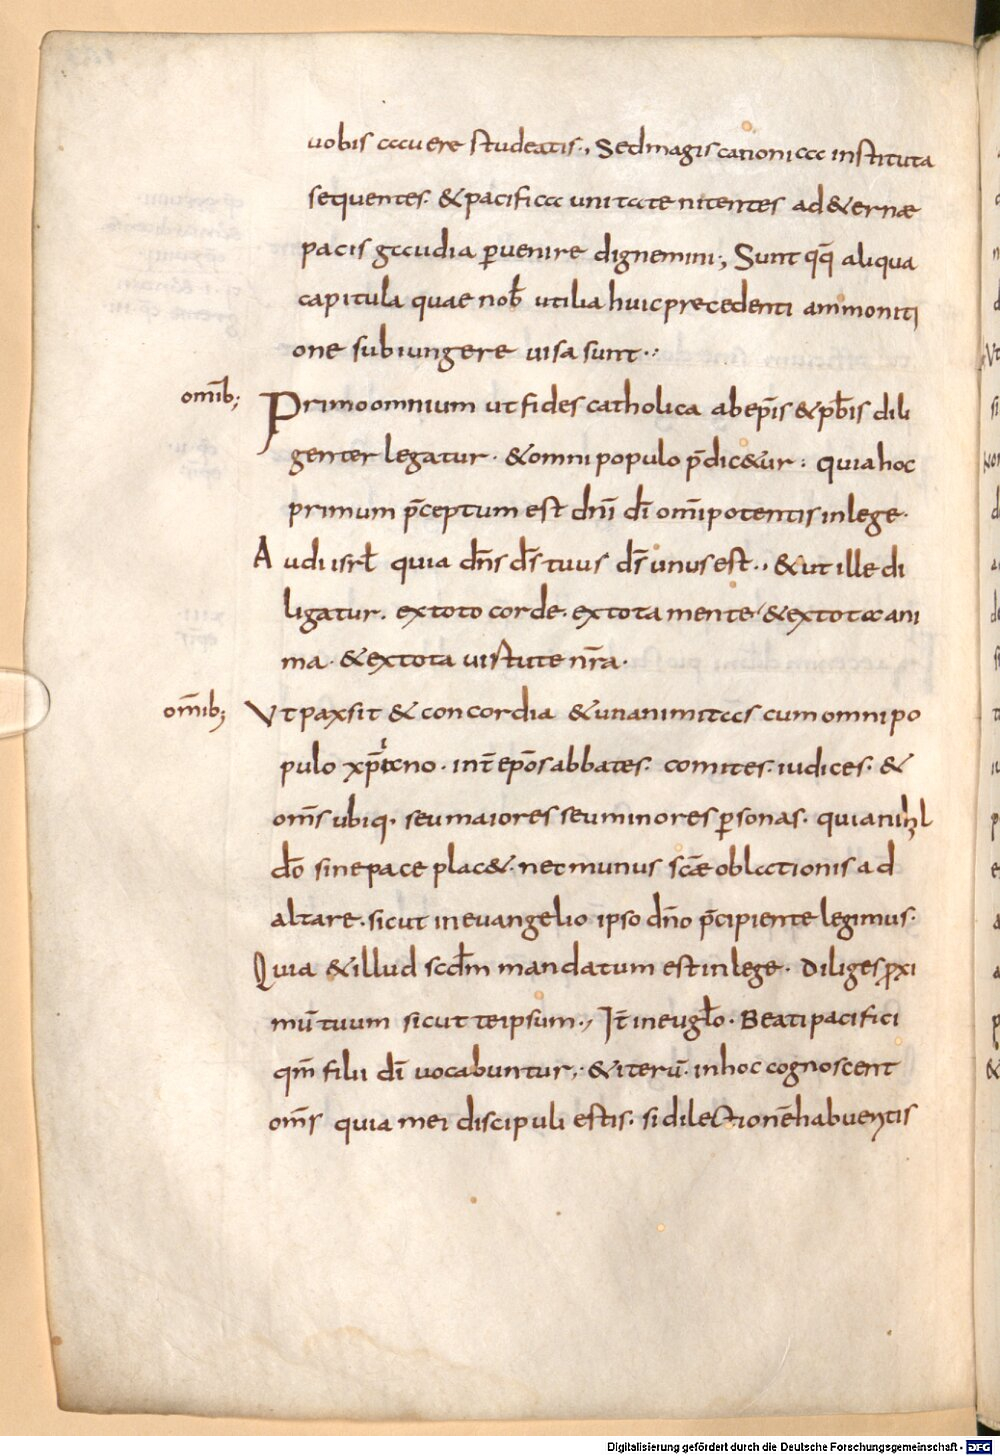 uobis cauere studeatis., Sed magis canonica instituta
sequentes. & pacifica unitate nitentes ad &ernae
pacis gaudia ꝑuenire dignemini., Sunt qq̄ aliqua
capitula quae nob̄ utilia huic precedenti ammoniti
one subiungere uisa sunt.
om̄ib;
Primo omnium ut fides catholica ab ep̄is & pb̄is dili
genter legatur. & omni populo p̄dic&ur: quia hoc
primum p̄ceptum est dn̄i dī om̄ipotentis in lege.
Audi isrł quia dn̄s d̄s tuus d̄s unus est., & ut ille di
ligatur. ex toto corde. ex tota mente. & ex tota ani
ma. & ex tota uirtute nr̄a.
om̄ib;
Vt pax sit & concordia & unanimitas cum omni po
pulo xp̄iano. int̄ ep̄os abbates. comites. iudices. &
om̄s ubiq. seu maiores seu minores ꝑsonas. quia nihl
dō sine pace plac&. nec munus scāe oblationis ad
altare. sicut in euangelio ipso dn̄o p̄cipiente legimus.
Quia & illud scdm̄ mandatum est in lege. Diliges ꝓxi
mū tuum sicut te ipsum., It̄ in euglō. Beati pacifici
qm̄ filii dī uocabuntur,. & iterū. in hoc cognoscent
om̄s quia mei discipuli estis. si dilectionē habueritis
Digitalisierung gefördert durch die Deutsche Forschungsgemeinschaft - DFG